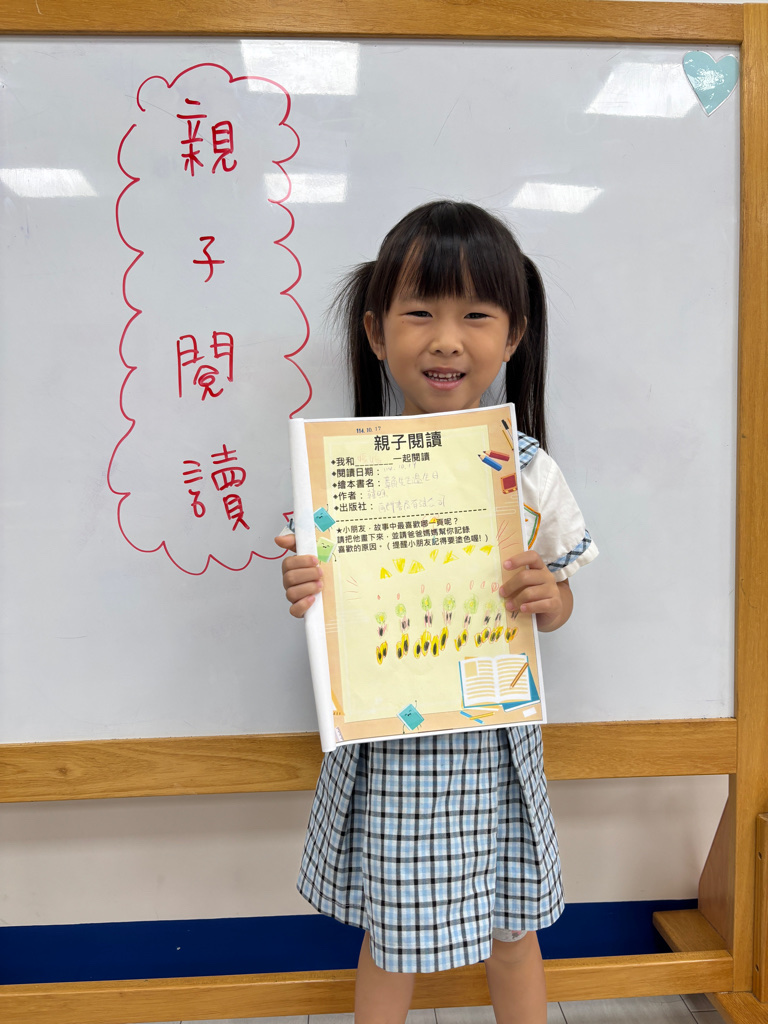 親子閱讀
114.10.17
親子閱讀
◆我和 一起閱讀
◆閱讀日期：
◆繪本書名：
◆作者：
◆出版社：
★小朋友，故事中最喜歡哪一頁呢？
請把他畫下來，並請爸爸媽媽幫你記錄
喜歡的原因。（提醒小朋友記得要塗色喔！）